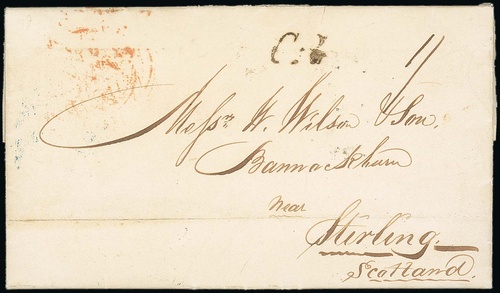 C:I
11
Messrs W. Wilson & Son,
Bannockburn
near
Sterling
Scotland.